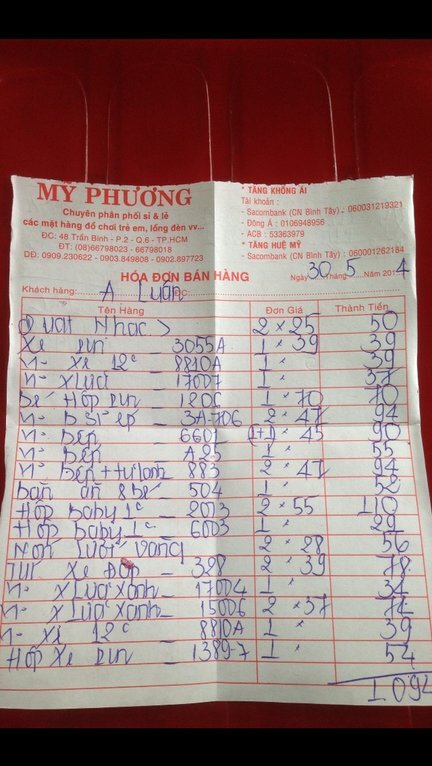 MỸ PHƯƠNG
Chuyên phân phối sỉ & lẻ
các mặt hàng đồ chơi trẻ em, lồng đèn vv...
ĐC: 48 Trần Bình - P.2 - Q.6 - TP.HCM
ĐT: (08)66798023 - 66798018
DĐ: 0909.230622 - 0903.849808 - 0902.897723
* TĂNG KHÔNG ÁI
Tài khoản :
- Sacombank (CN Bình Tây) : 060031219321
- Đông Á : 0106948956
- ACB : 53363979
* TĂNG HUỆ MỸ
- Sacombank (CN Bình Tây) : 060001262184
HÓA ĐƠN BÁN HÀNG
Ngày 30 Tháng 5 Năm 2014
Khách hàng: A Luân
Tên Hàng Đơn Giá Thành Tiền
Nhạc 2 x 25 50
Xe 3055A 1 x 39 39
Xe 12c 8810A 1 " 39
17007 1 " 37
Hộp 1206 1 x 70 70
3A-706 2 x 47 94
Bếp 6601 (1+1) x 45 90
Bếp A.23 1 " 55
Bếp + tủ lạnh 883 2 x 47 94
Bàn ăn 8 bé 504 1 " 52
Hộp baby 1c 2013 2 x 55 110
Hộp baby 1c 6003 1 " 29
Nón lưới vàng 2 x 28 56
Túi Xe Đạp 328 2 x 39 78
X Lửa xanh 17004 1 " 34
X Lửa xanh 15006 2 x 37 74
Xe 12c 8810A 1 " 39
Hộp Xe 1389-7 1 " 54
1.094